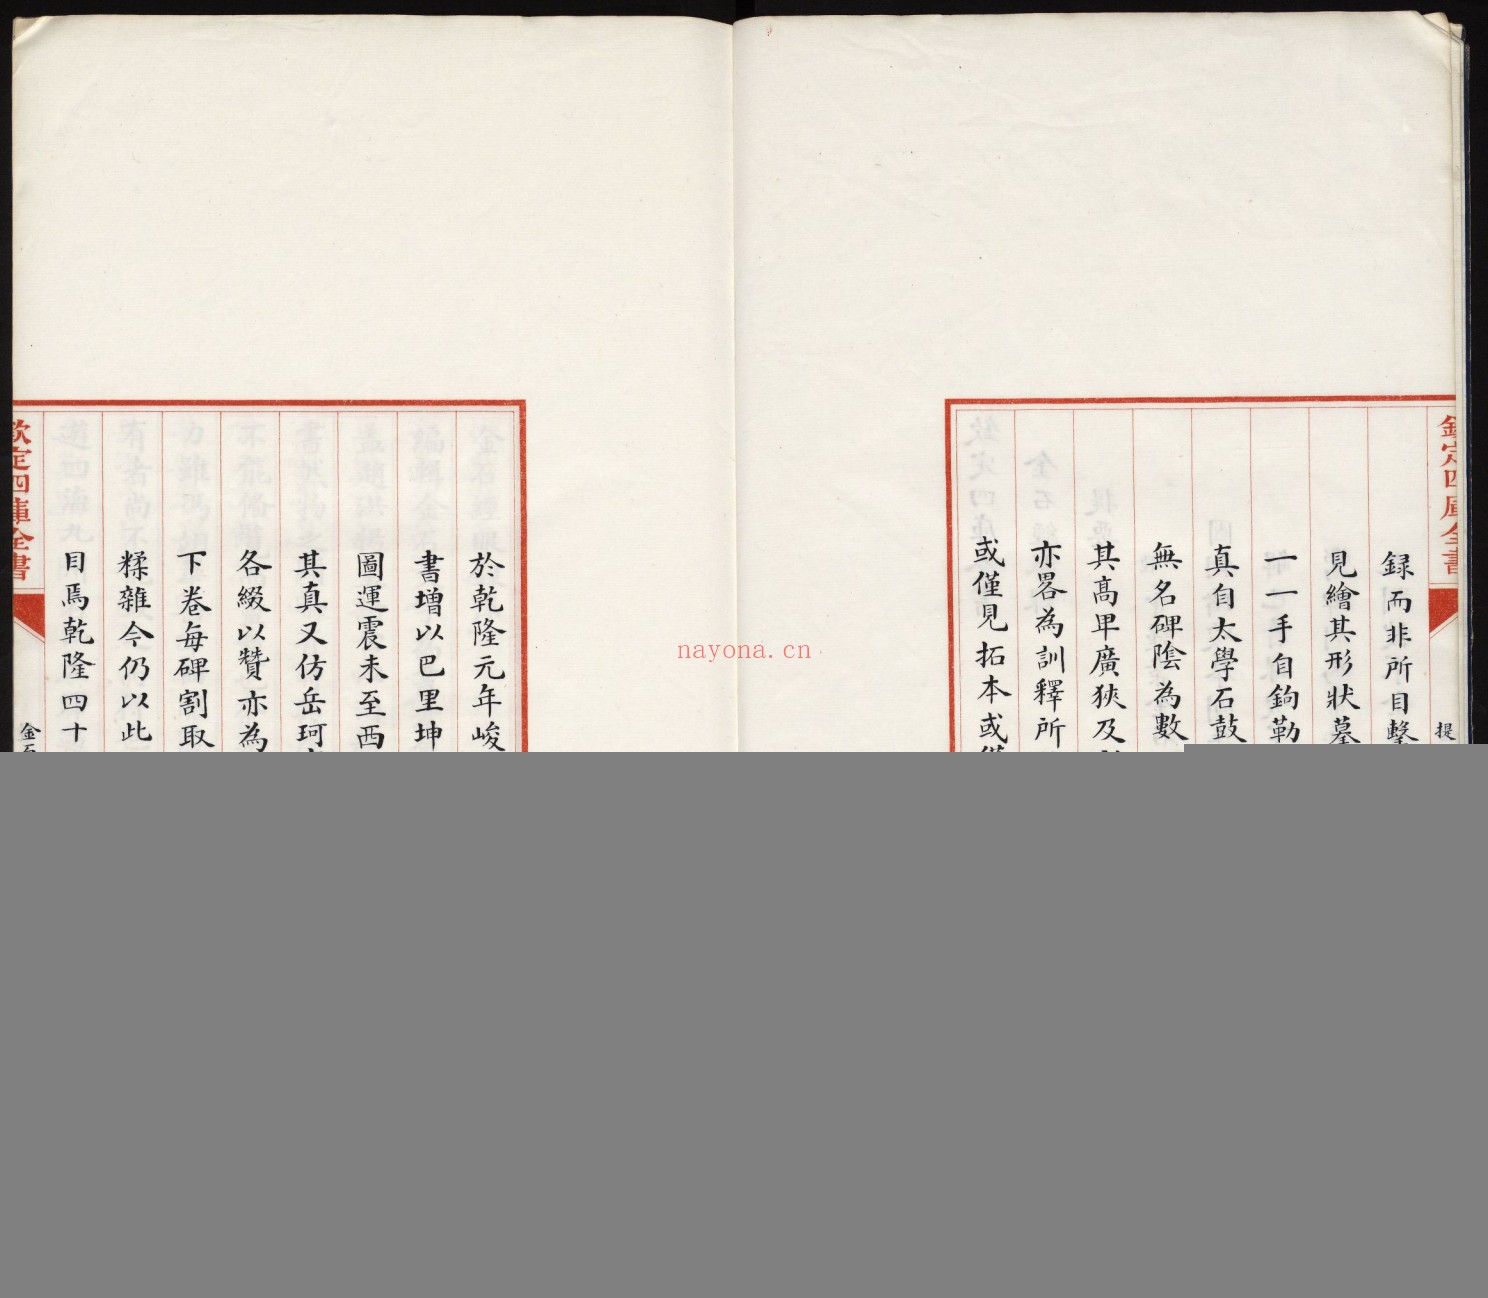 欽定四庫全書
提
録而非所目擊
見繪其形狀摹
一一手自鉤勒
真自太學石鼓
無名碑陰為數
其髙卑廣狹及
亦畧為訓釋所
或僅見拓本或僅
nayona.cn
於乾隆元年峻
書增以巴里坤
圖運震未至西
其真又仿岳珂
各綴以贊亦為
下卷每碑割取
糅雜今仍以此
目焉乾隆四十
欽定四庫全書
金石